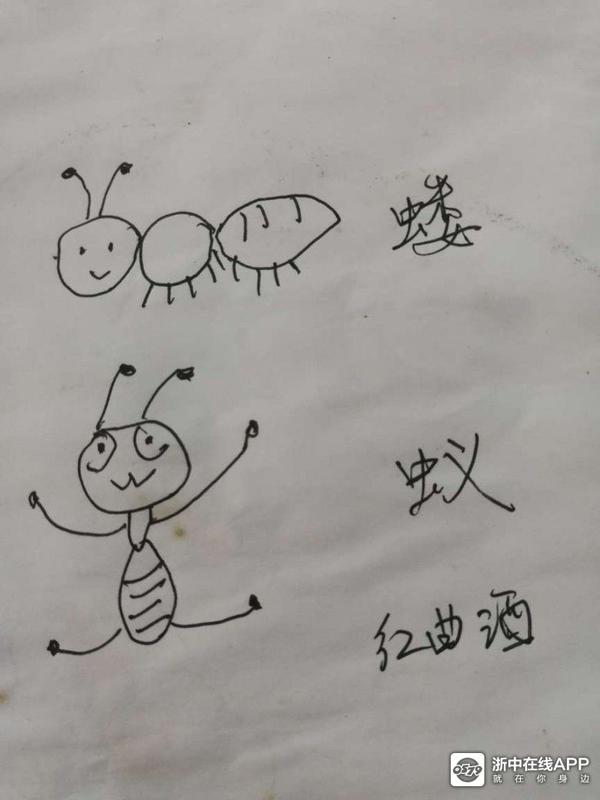 蝼
蚁
红曲酒
浙中在线APP
就在你身边